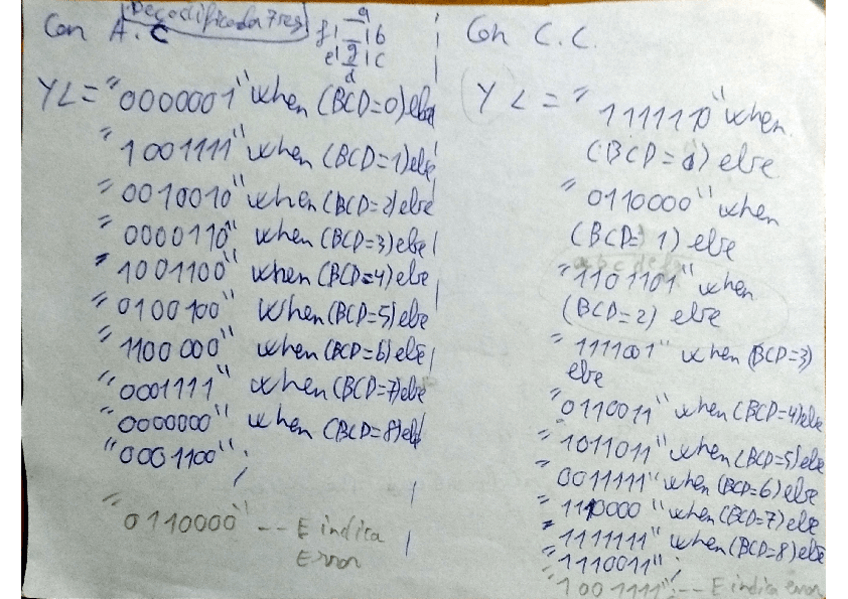 Con A.C
Decodificador 7 seg
a
f b
g
e c
d
Y<= "0000001" when (BCD=0) else
"1001111" when (BCD=1) else
"0010010" when (BCD=2) else
"0000110" when (BCD=3) else
"1001100" when (BCD=4) else
"0100100" when (BCD=5) else
"1100000" when (BCD=6) else
"0001111" when (BCD=7) else
"0000000" when (BCD=8) else
"0001100";
"0110000" -- E indica
Error
Con C.C.
Y <= "1111110" when
(BCD=0) else
"0110000" when
(BCD=1) else
"1101101" when
(BCD=2) else
"1111001" when (BCD=3)
else
"0110011" when (BCD=4) else
"1011011" when (BCD=5) else
"0011111" when (BCD=6) else
"1110000" when (BCD=7) else
"1111111" when (BCD=8) else
"1110011";
"1001111"; -- E indica error